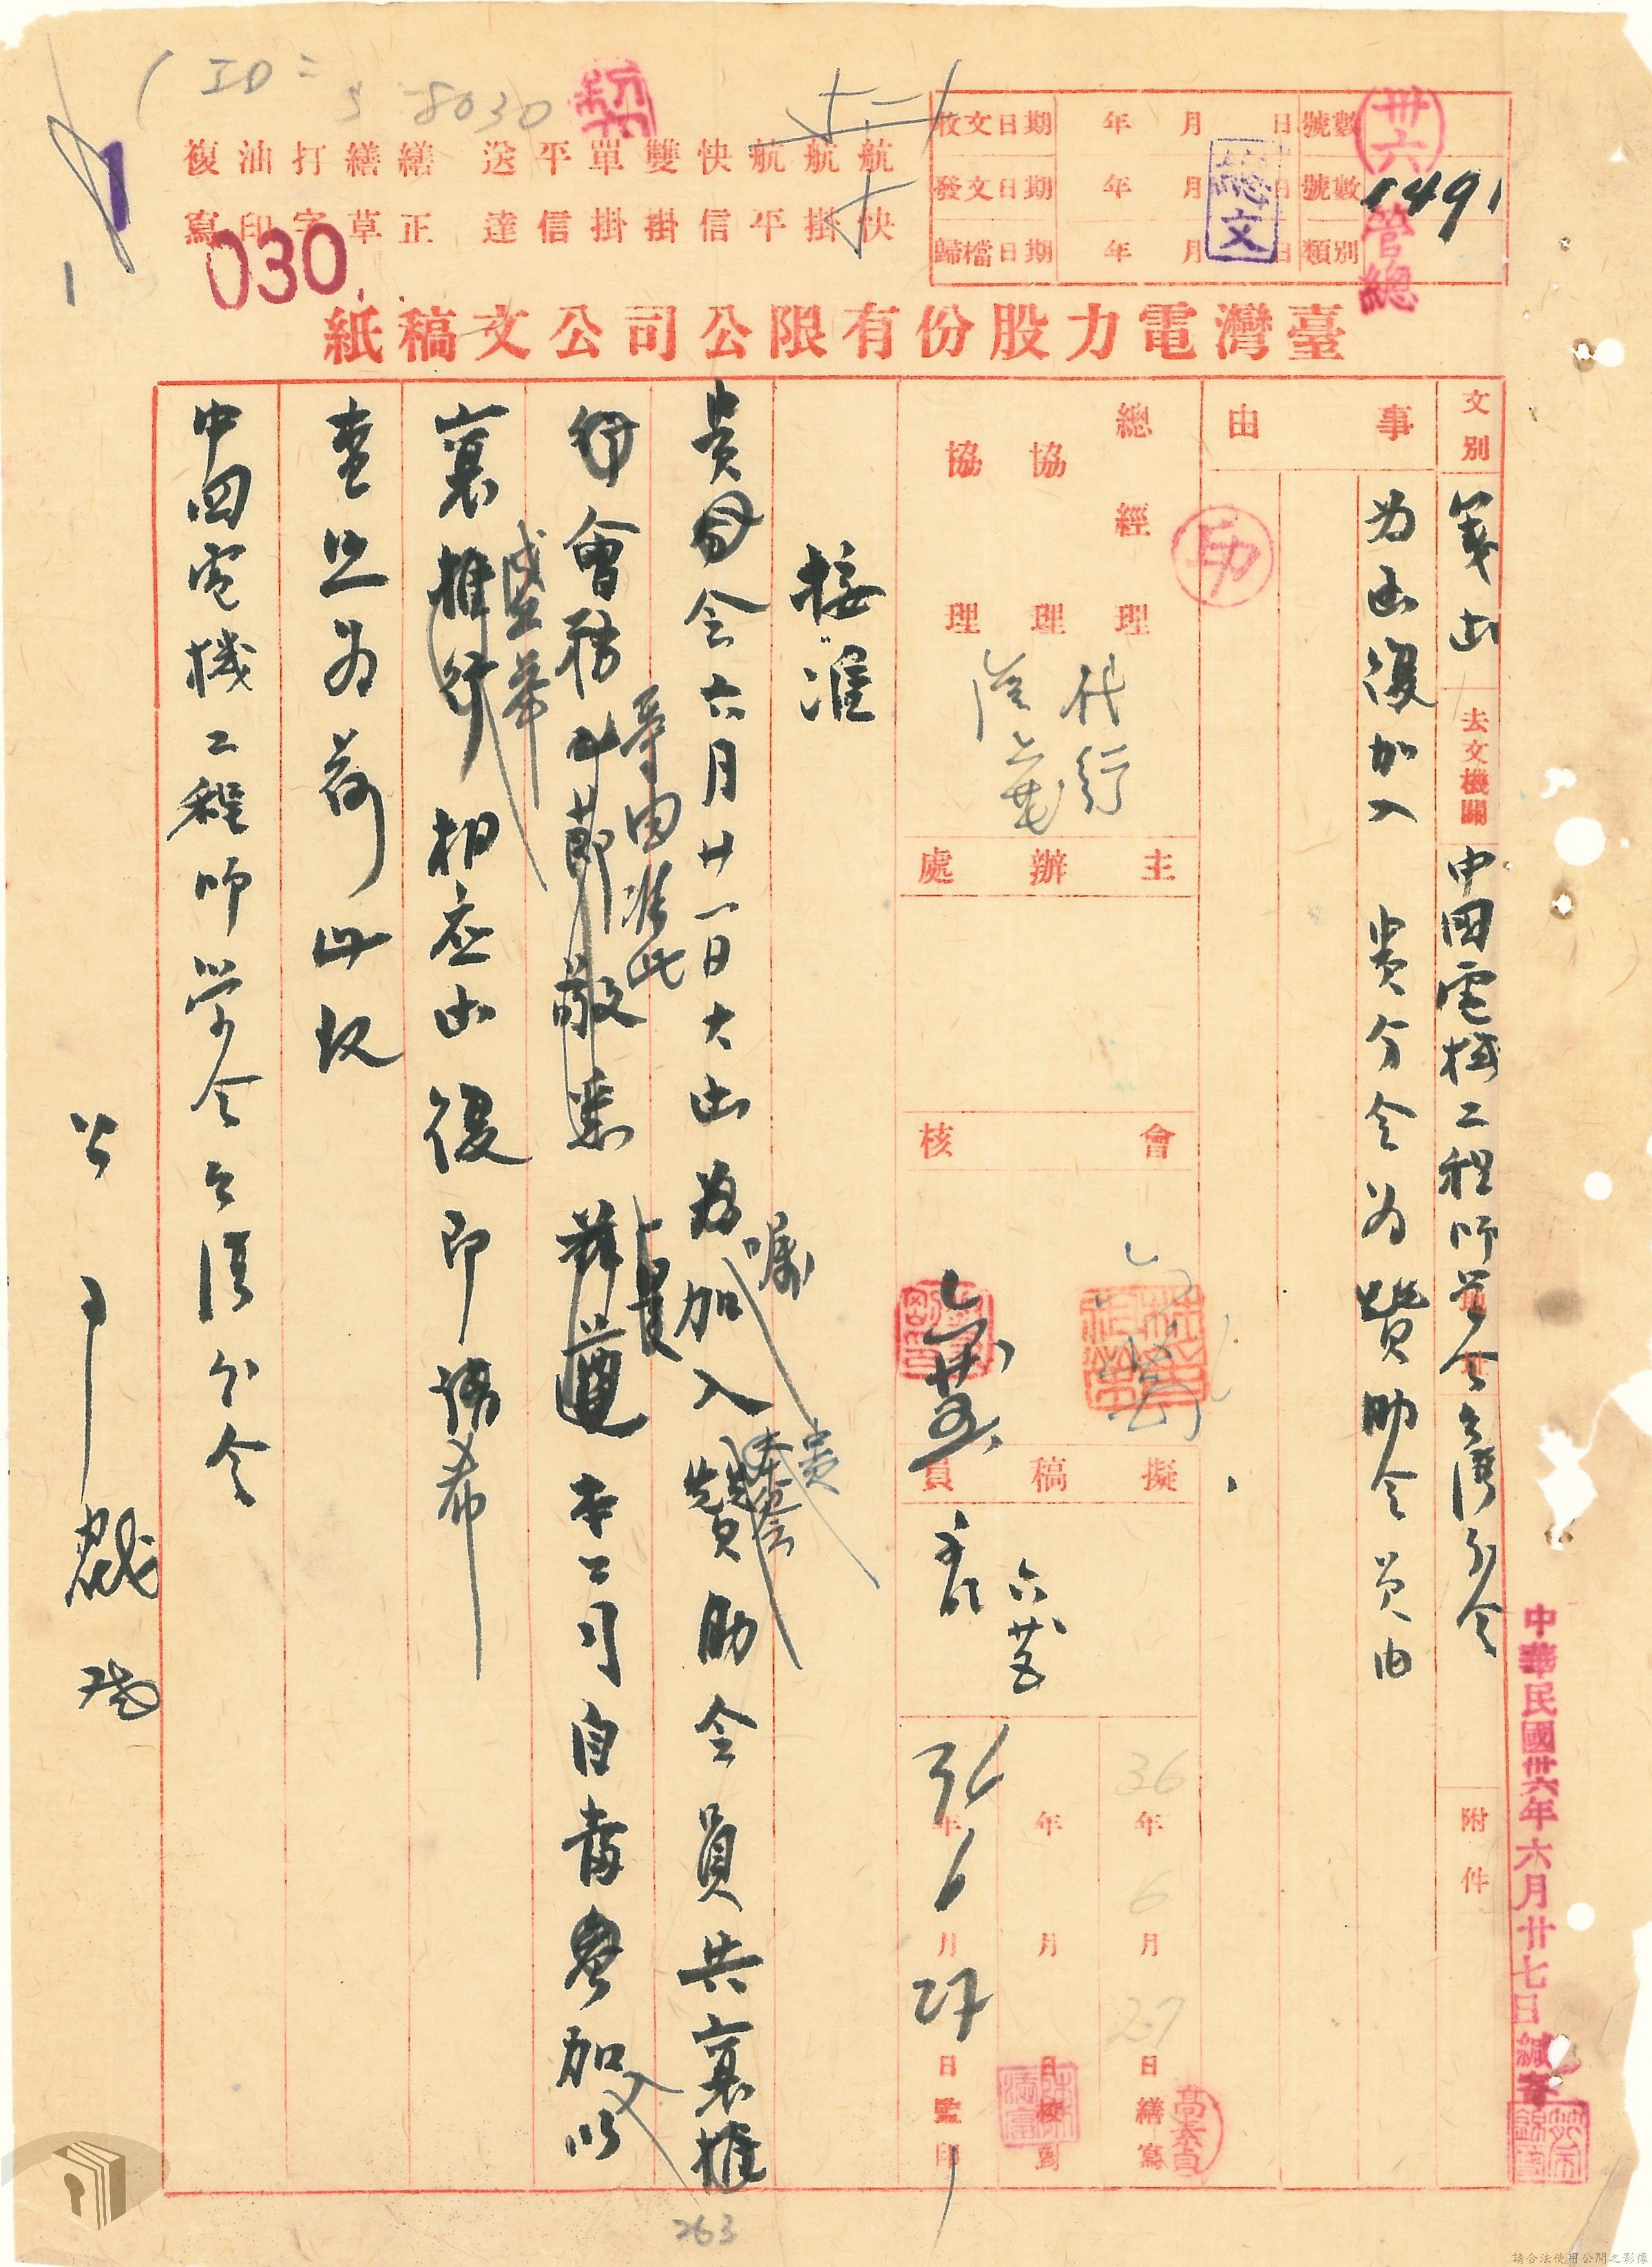 (ID=
5-8030
契
收文日期 年 月 日 號數
發文日期 年 月 日 號數
歸檔日期 年 月 日 類別
卅六
管總
1491
總文
航快
航掛
航平
快信
雙掛
單掛
平信
送達
繕正
繕草
打字
油印
複寫
030
臺灣電力股份有限公司公文稿紙
文別 箋函 去文機關 中國電機工程師學會台灣分會 附件
事由 為函復加入 貴分會為贊助會員由
印
總經理
協理
協理
代行
主辦處
會核
擬稿員
36年6月27日繕寫
年 月 日校對
36年6月27日監印
高泰貞
接准
貴分會六月廿一日大函為加入贊助會員共襄推
囑
貴
行會務等由准此
敬悉 本公司自當參加以
襄盛舉相應函復即請希
推行
查照為荷此致
中國電機工程師學會台灣分會
公司戳 啟
中華民國卅六年六月廿七日緘寄
263
請合法使用公開之影像